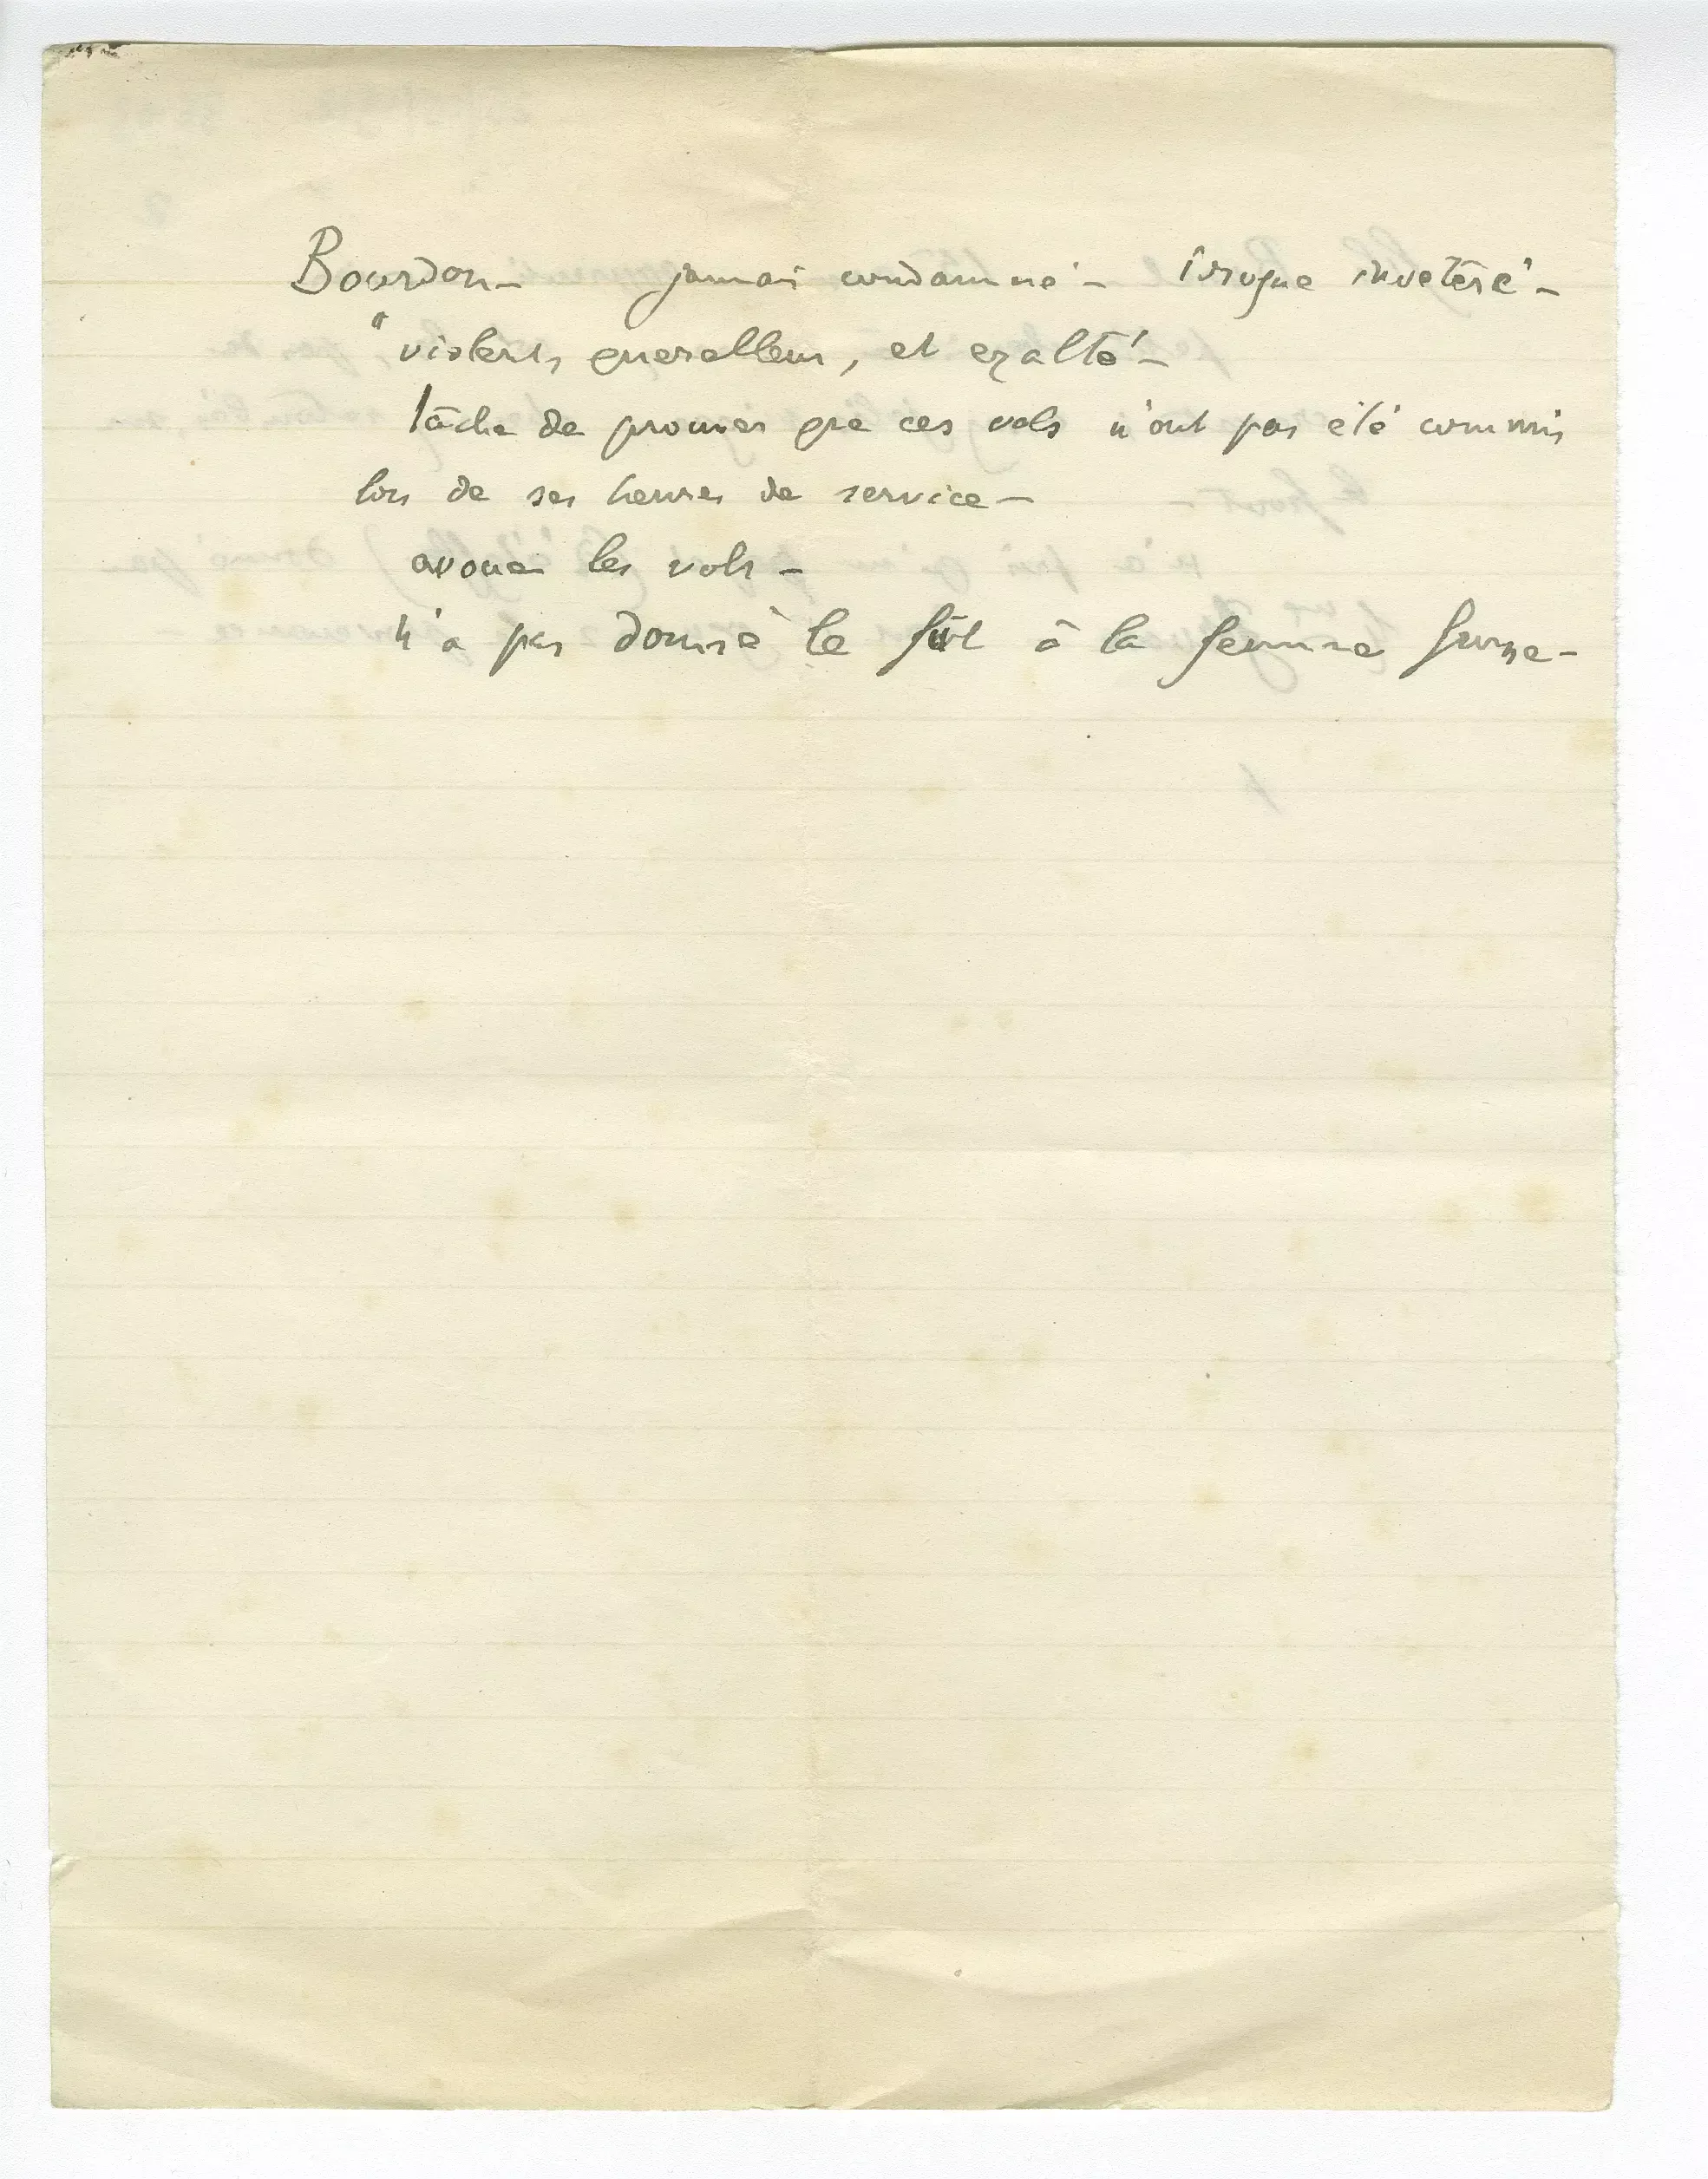 Bourdon – jamais condamné – Ivrogne invétéré –
" violent, querelleur, et exalté –
tâche de prouver que ces vols n'ont pas été commis
lors de ses heures de service –
avoue les vols –
n'a pas donné le fût à la femme